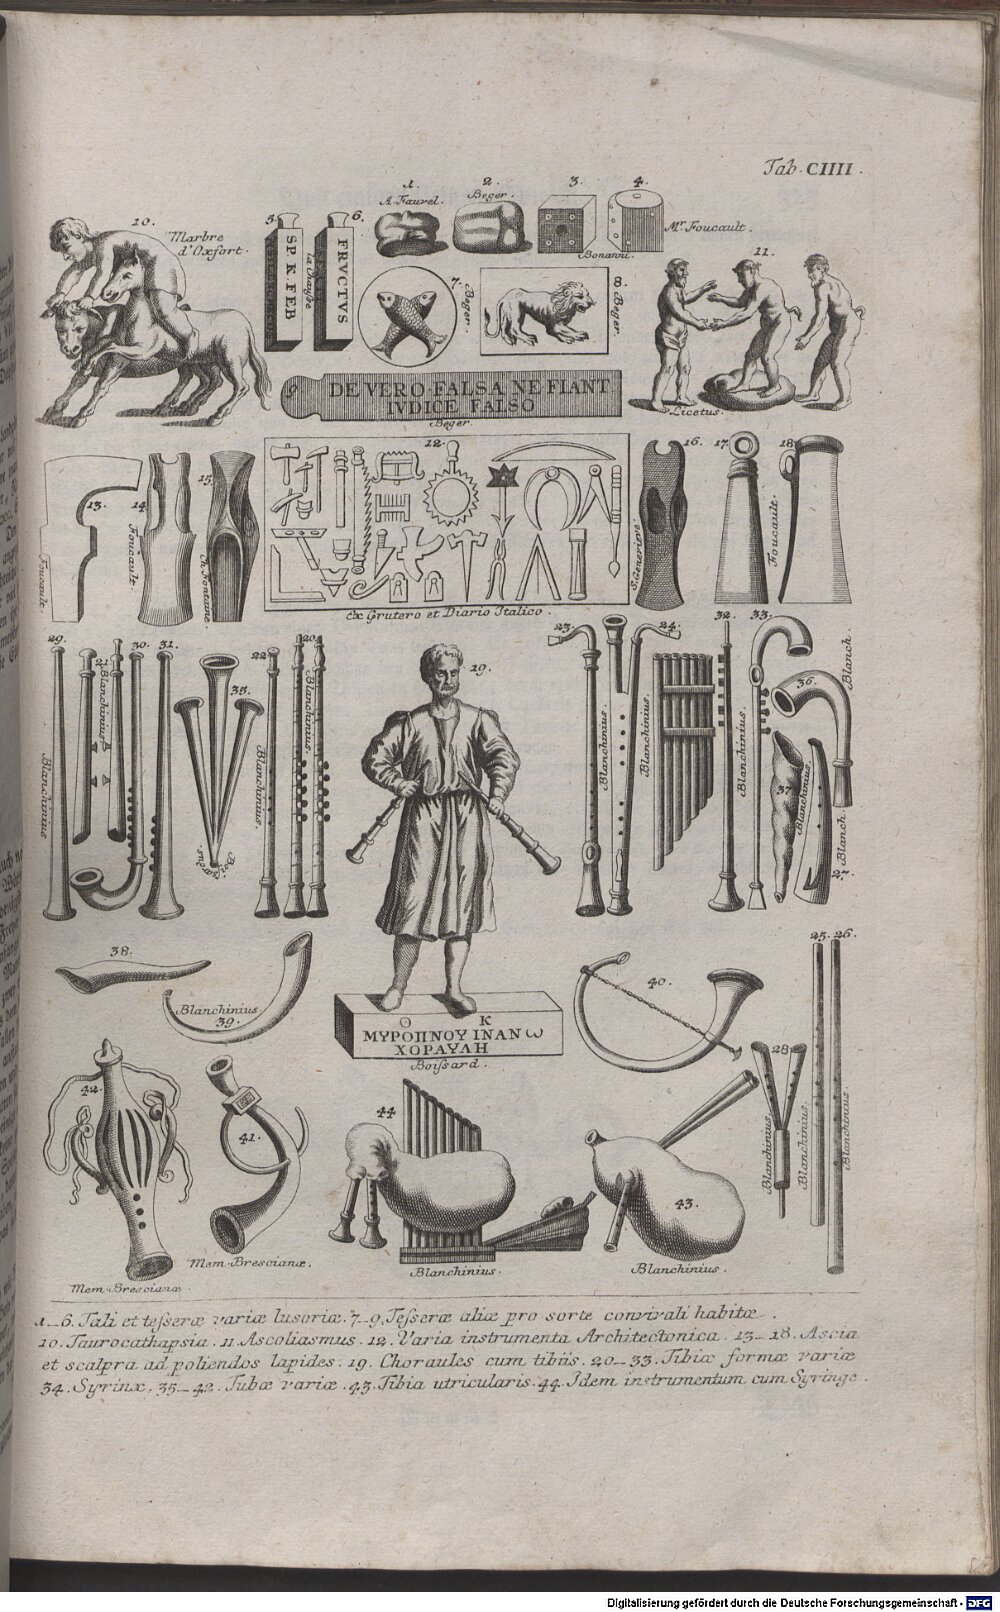 Tab. CIIII.
1.
A. Fauvel.
2.
Beger.
3.
4.
Bonanni.
Mr. Foucault.
10.
Marbre
d'Oxfort.
5.
SP. K. FEB
6.
FRVCTVS
la Chausse
7.
Beger.
8.
Beger.
11.
Licetus.
9
DE VERO FALSA NE FIANT
IVDICE FALSO
Beger.
12.
13.
Foucault.
14.
Foucault.
15.
16.
S. Genevieve.
17.
Foucault.
18.
Ex Grutero et Diario Italico.
29.
Blanchinius
21.
Blanchinius
30.
31.
35.
Boissardus
22.
Blanchinius.
20.
Blanchinius.
19.
23.
Blanchinius.
24.
Blanchinius.
32.
Blanchinius.
33.
36.
Blanch.
37
Blanchinius.
Blanch.
27.
38.
Blanchinius.
39.
Θ Κ
ΜΥΡΟΠΝΟΥ ΙΝΑΝ ω
ΧΟΡΑΥΛΗ
Boissard.
40.
25.
26.
28
Blanchinius.
Blanchinius.
Blanchinius
42.
Mem. Brescianæ.
41.
Mem. Brescianæ.
44
Blanchinius.
43.
Blanchinius.
1_6. Tali et tesseræ variæ lusoriæ. 7_9. Tesseræ aliæ pro sorte convivali habitæ.
10. Taurocathapsia. 11. Ascoliasmus. 12. Varia instrumenta Architectonica. 13_18. Ascia
et scalpra ad poliendos lapides. 19. Choraules cum tibiis. 20_33. Tibiæ formæ variæ
34. Syrinx. 35_42. Tubæ variæ. 43. Tibia utricularis. 44. Idem instrumentum cum Syringe.
Digitalisierung gefördert durch die Deutsche Forschungsgemeinschaft - DFG